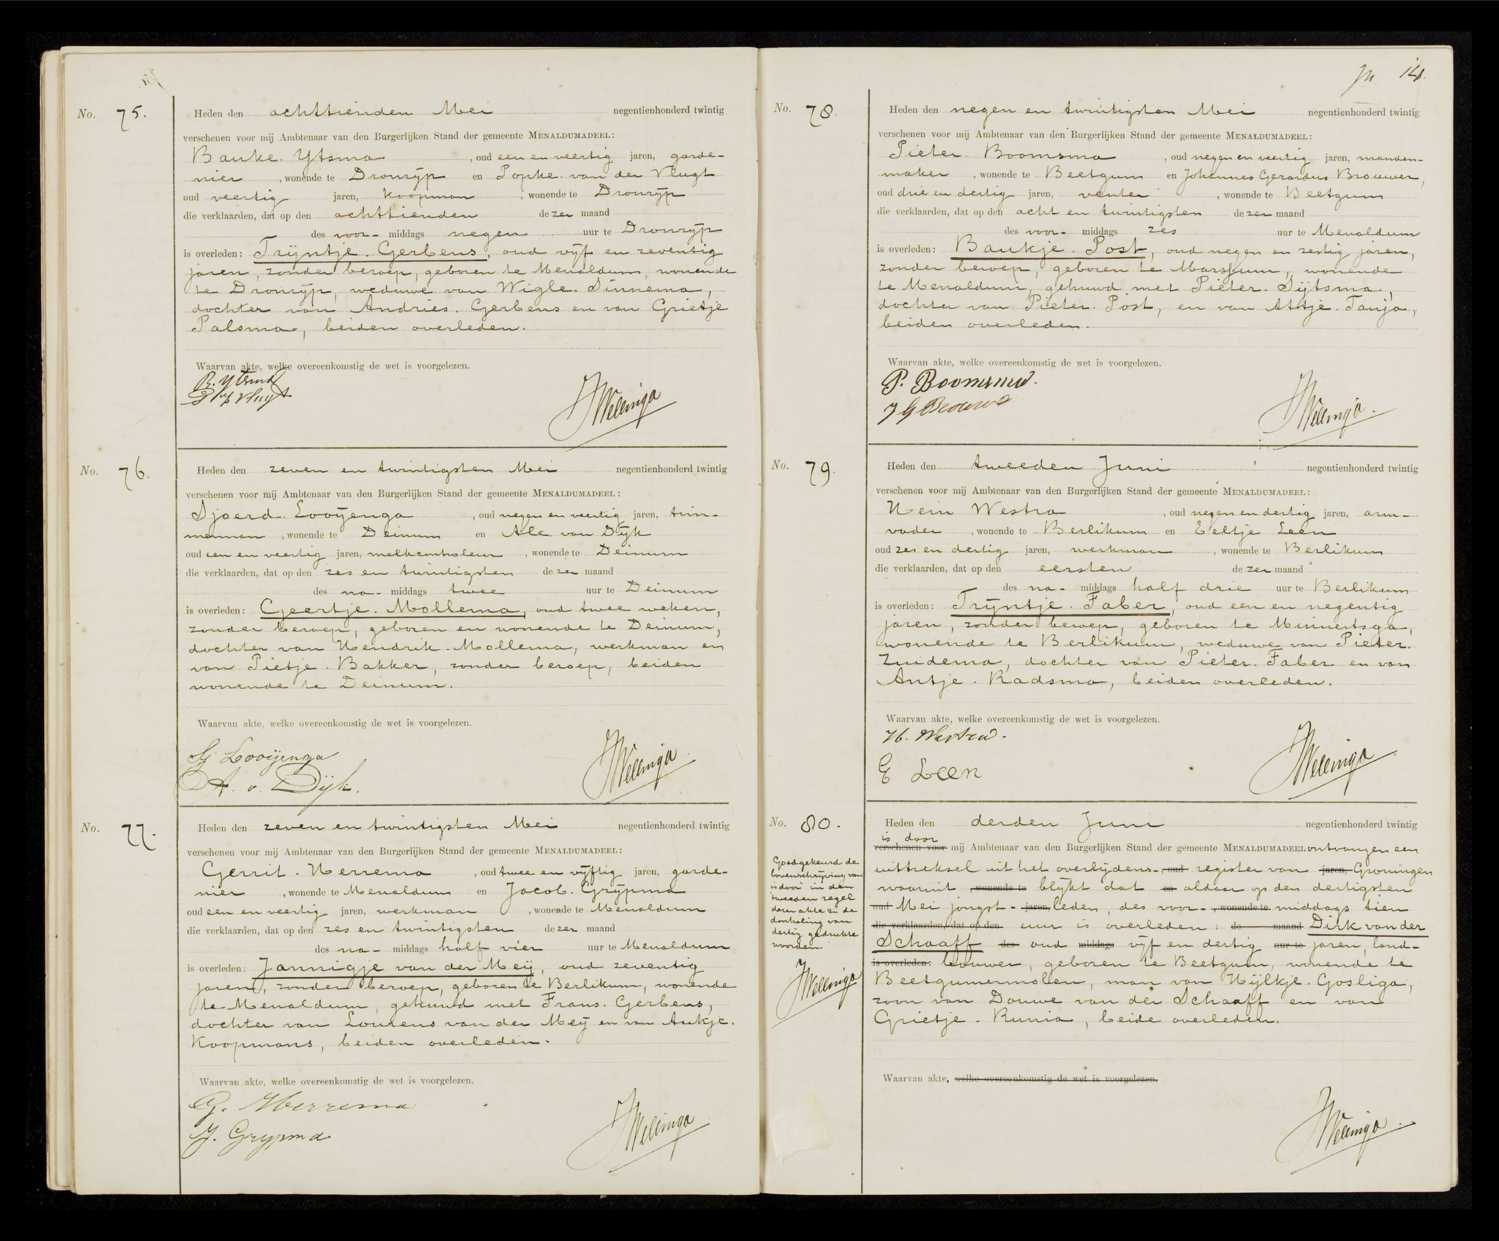 No. 75.
Heden den achttienden Mei negentienhonderd twintig
verschenen voor mij Ambtenaar van den Burgerlijken Stand der gemeente MENALDUMADEEL:
Bauke Ytsma, oud een en veertig jaren, garde-
nier, wonende te Dronrijp en Popke van der Vlugt
oud veertig jaren, koopman, wonende te Dronrijp
die verklaarden, dat op den achttienden dezer maand
des voor- middags negen uur te Dronrijp
is overleden: Trijntje Gerbens, oud vijf en zeventig
jaren, zonder beroep, geboren te Menaldum, wonende
te Dronrijp, weduwe van Wigle Sinnema,
dochter van Andries Gerbens en van Grietje
Palsma, beiden overleden.
Waarvan akte, welke overeenkomstig de wet is voorgelezen.
B. Ytsma
P vd Vlugt
JWellinga
No. 76.
Heden den zeven en twintigsten Mei negentienhonderd twintig
verschenen voor mij Ambtenaar van den Burgerlijken Stand der gemeente MENALDUMADEEL:
Sjoerd Looijenga, oud negen en veertig jaren, tim-
merman, wonende te Deinum en Ale van Dijk
oud een en veertig jaren, melkcontroleur, wonende te Deinum
die verklaarden, dat op den zes en twintigsten dezer maand
des na- middags twee uur te Deinum
is overleden: Geertje Mollema, oud twee weken,
zonder beroep, geboren en wonende te Deinum,
dochter van Hendrik Mollema, werkman en
van Pietje Bakker, zonder beroep, beiden
wonende te Deinum.
Waarvan akte, welke overeenkomstig de wet is voorgelezen.
Sj Looijenga
A. v. Dijk.
JWellinga
No. 77.
Heden den zeven en twintigsten Mei negentienhonderd twintig
verschenen voor mij Ambtenaar van den Burgerlijken Stand der gemeente MENALDUMADEEL:
Gerrit Herrema, oud twee en vijftig jaren, garde-
nier, wonende te Menaldum en Jacob Grijpma
oud een en veertig jaren, werkman, wonende te Menaldum
die verklaarden, dat op den zes en twintigsten dezer maand
des na- middags half vier uur te Menaldum
is overleden: Jannigje van der Meij, oud zeventig
jaren, zonder beroep, geboren te Berlikum, wonende
te Menaldum, gehuwd met Frans Gerbens,
dochter van Lourens van der Meij en van Aukje
Koopmans, beiden overleden.
Waarvan akte, welke overeenkomstig de wet is voorgelezen.
G. Herrema
J. Grypma
JWellinga
14.
No. 78.
Heden den negen en twintigsten Mei negentienhonderd twintig
verschenen voor mij Ambtenaar van den Burgerlijken Stand der gemeente MENALDUMADEEL:
Pieter Boomsma, oud negen en veertig jaren, manden-
maker, wonende te Beetgum en Johannes Gerardus Brouwer,
oud drie en dertig jaren, venter, wonende te Beetgum
die verklaarden, dat op den acht en twintigsten dezer maand
des voor- middags zes uur te Menaldum
is overleden: Baukje Post, oud negen en zestig jaren,
zonder beroep, geboren te Marssum, wonende
te Menaldum, gehuwd met Pieter Sijtsma,
dochter van Pieter Post, en van Attje Tanja,
beiden overleden.
Waarvan akte, welke overeenkomstig de wet is voorgelezen.
P. Boomsma.
J G Brouwer
JWellinga.
No. 79.
Heden den tweeden Juni negentienhonderd twintig
verschenen voor mij Ambtenaar van den Burgerlijken Stand der gemeente MENALDUMADEEL:
Hein Westra, oud negen en dertig jaren, arm-
vader, wonende te Berlikum en Eeltje Leen
oud zes en dertig jaren, werkman, wonende te Berlikum
die verklaarden, dat op den eersten dezer maand
des na- middags half drie uur te Berlikum
is overleden: Trijntje Faber, oud een en negentig
jaren, zonder beroep, geboren te Minnertsga,
wonende te Berlikum, weduwe van Pieter
Zuidema, dochter van Pieter Faber en van
Antje Radsma, beiden overleden.
Waarvan akte, welke overeenkomstig de wet is voorgelezen.
H. Westra.
E Leen
JWellinga
No. 80.
Heden den derden Juni negentienhonderd twintig
is door
verschenen voor mij Ambtenaar van den Burgerlijken Stand der gemeente MENALDUMADEEL ontvangen een
uittreksel uit het overlijdens- oud register van jaren, Groningen
waaruit wonende te blijkt dat en aldaar op den dertigsten
oud Mei jongst- jaren, leden, des voor- wonende te middags tien
die verklaarden, dat op den uur is overleden: de maand Dirk van der
Schaaff des oud middags vijf en dertig uur te jaren, land-
is overleden: bouwer, geboren te Beetgum, wonende te
Beetgumermolen, man van Hijlkje Gosliga,
zoon van Douwe van der Schaaff en van
Grietje Runia, beide overleden.
Waarvan akte, welke overeenkomstig de wet is voorgelezen.
JWellinga
Goedgekeurd de
bovenschrijving van
is door in den
tweeden regel
dezer akte en de
doorhaling van
dertig gedrukte
woorden
JWellinga